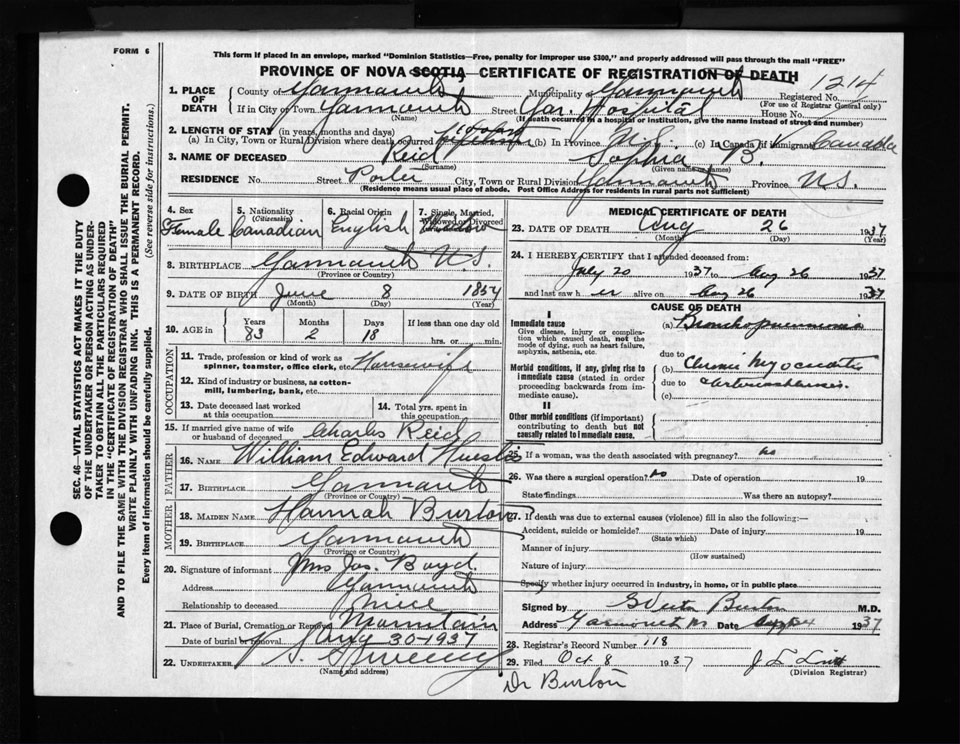 FORM 6
This form if placed in an envelope, marked "Dominion Statistics—Free, penalty for improper use $300," and properly addressed will pass through the mail "FREE"
PROVINCE OF NOVA SCOTIA—CERTIFICATE OF REGISTRATION OF DEATH
1. PLACE OF DEATH County of Yarmouth Municipality of Yarmouth Registered No. 1214
(For use of Registrar General only)
If in City or Town Yarmouth (Name) Street Yar. Hospital House No.
(If death occurred in a hospital or institution, give the name instead of street and number)
2. LENGTH OF STAY (in years, months and days)
(a) In City, Town or Rural Division where death occurred (b) In Province N.S. (c) In Canada (if immigrant) Canada
3. NAME OF DECEASED Reid (Surname) Sophia B. (Given name or names)
RESIDENCE No. Street Porter City, Town or Rural Division Yarmouth Province N.S.
(Residence means usual place of abode. Post Office Address for residents in rural parts not sufficient)
SEC. 46—VITAL STATISTICS ACT MAKES IT THE DUTY
OF THE UNDERTAKER OR PERSON ACTING AS UNDER-
TAKER TO OBTAIN ALL THE PARTICULARS REQUIRED
IN THE "CERTIFICATE OF REGISTRATION OF DEATH"
AND TO FILE THE SAME WITH THE DIVISION REGISTRAR WHO SHALL ISSUE THE BURIAL PERMIT.
WRITE PLAINLY WITH UNFADING INK. THIS IS A PERMANENT RECORD.
Every item of information should be carefully supplied. (See reverse side for instructions.)
4. Sex Female
5. Nationality (Citizenship) Canadian
6. Racial Origin English
7. Single, Married, Widowed or Divorced Widow
8. BIRTHPLACE Yarmouth N.S.
(Province or Country)
9. DATE OF BIRTH June (Month) 8 (Day) 1854 (Year)
10. AGE in Years 83 Months 2 Days 18 If less than one day old hrs. or min.
OCCUPATION
11. Trade, profession or kind of work as spinner, teamster, office clerk, etc. Housewife
12. Kind of industry or business, as cotton-mill, lumbering, bank, etc.
13. Date deceased last worked at this occupation
14. Total yrs. spent in this occupation
15. If married give name of wife or husband of deceased Charles Reid
FATHER
16. NAME William Edward Huestis
17. BIRTHPLACE Yarmouth
(Province or Country)
MOTHER
18. MAIDEN NAME Hannah Burton
19. BIRTHPLACE Yarmouth
(Province or Country)
20. Signature of informant Mrs Jos. Boyd
Address Yarmouth
Relationship to deceased Niece
21. Place of Burial, Cremation or Removal Mountain
Date of burial or removal Aug 30-1937
22. UNDERTAKER Sweeny
(Name and address)
MEDICAL CERTIFICATE OF DEATH
23. DATE OF DEATH Aug (Month) 26 (Day) 1937 (Year)
24. I HEREBY CERTIFY that I attended deceased from:
July 20 1937 to Aug 26 1937
and last saw h er alive on Aug 26 1937
CAUSE OF DEATH
I
Immediate cause
Give disease, injury, or complication which caused death, not the mode of dying, such as heart failure, asphyxia, asthenia, etc.
(a) Bronchopneumonia
due to
Morbid conditions, if any, giving rise to immediate cause (stated in order proceeding backwards from immediate).
(b) Chronic Myocarditis
due to arteriosclerosis
(c)
II
Other morbid conditions (if important) contributing to death but not causally related to immediate cause.
25. If a woman, was the death associated with pregnancy? no
26. Was there a surgical operation? no Date of operation 19
State findings Was there an autopsy?
27. If death was due to external causes (violence) fill in also the following:—
Accident, suicide or homicide? Date of injury 19
(State which)
Manner of injury
(How sustained)
Nature of injury
Specify whether injury occurred in industry, in home, or in public place
Signed by Burton M.D.
Address Yarmouth Date 1937
28. Registrar's Record Number 118
29. Filed Oct 8 1937
(Division Registrar)
Dr Burton